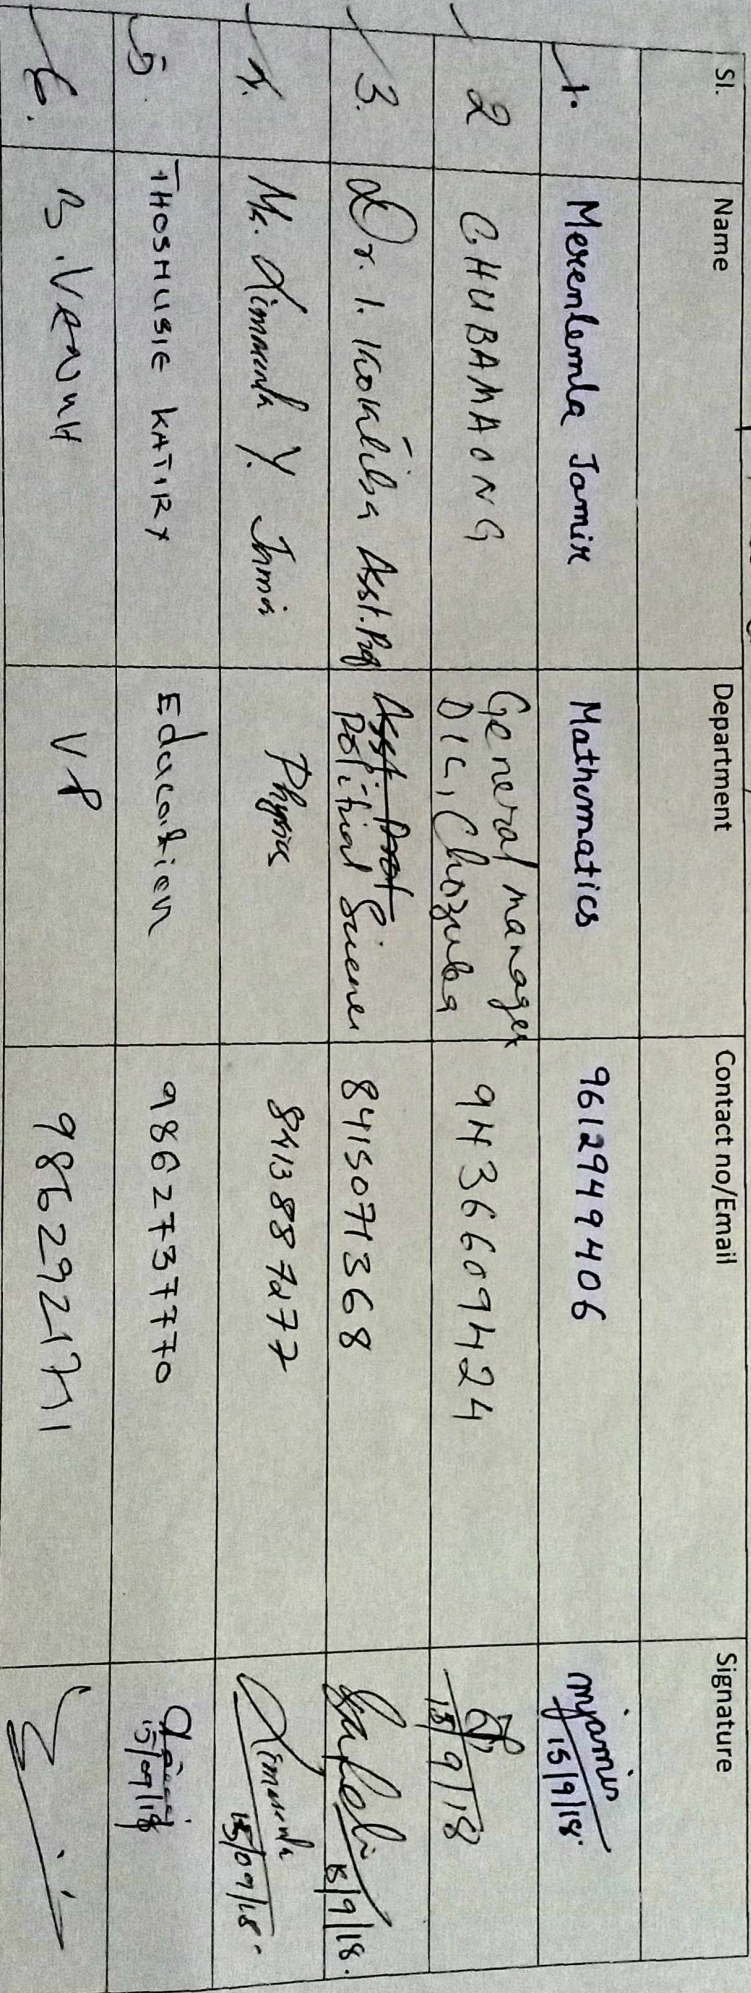 Sl. Name Department Contact no/Email Signature
1. Merenlemla Jamir Mathematics 9612949406 mjamir 15/9/18
2 CHUBAMAONG General manager DIC, Chozuba 9436609424 15/9/18
3. Dr. I. Asst. Prof Asst. Prof Political Science 8415071368 15/9/18.
4. Limawala Y. Jamir Physics Limawala 15/09/18.
5. THOSHUSIE KATIRY Education 9862737770 15/09/18
6. B. VENUH VP